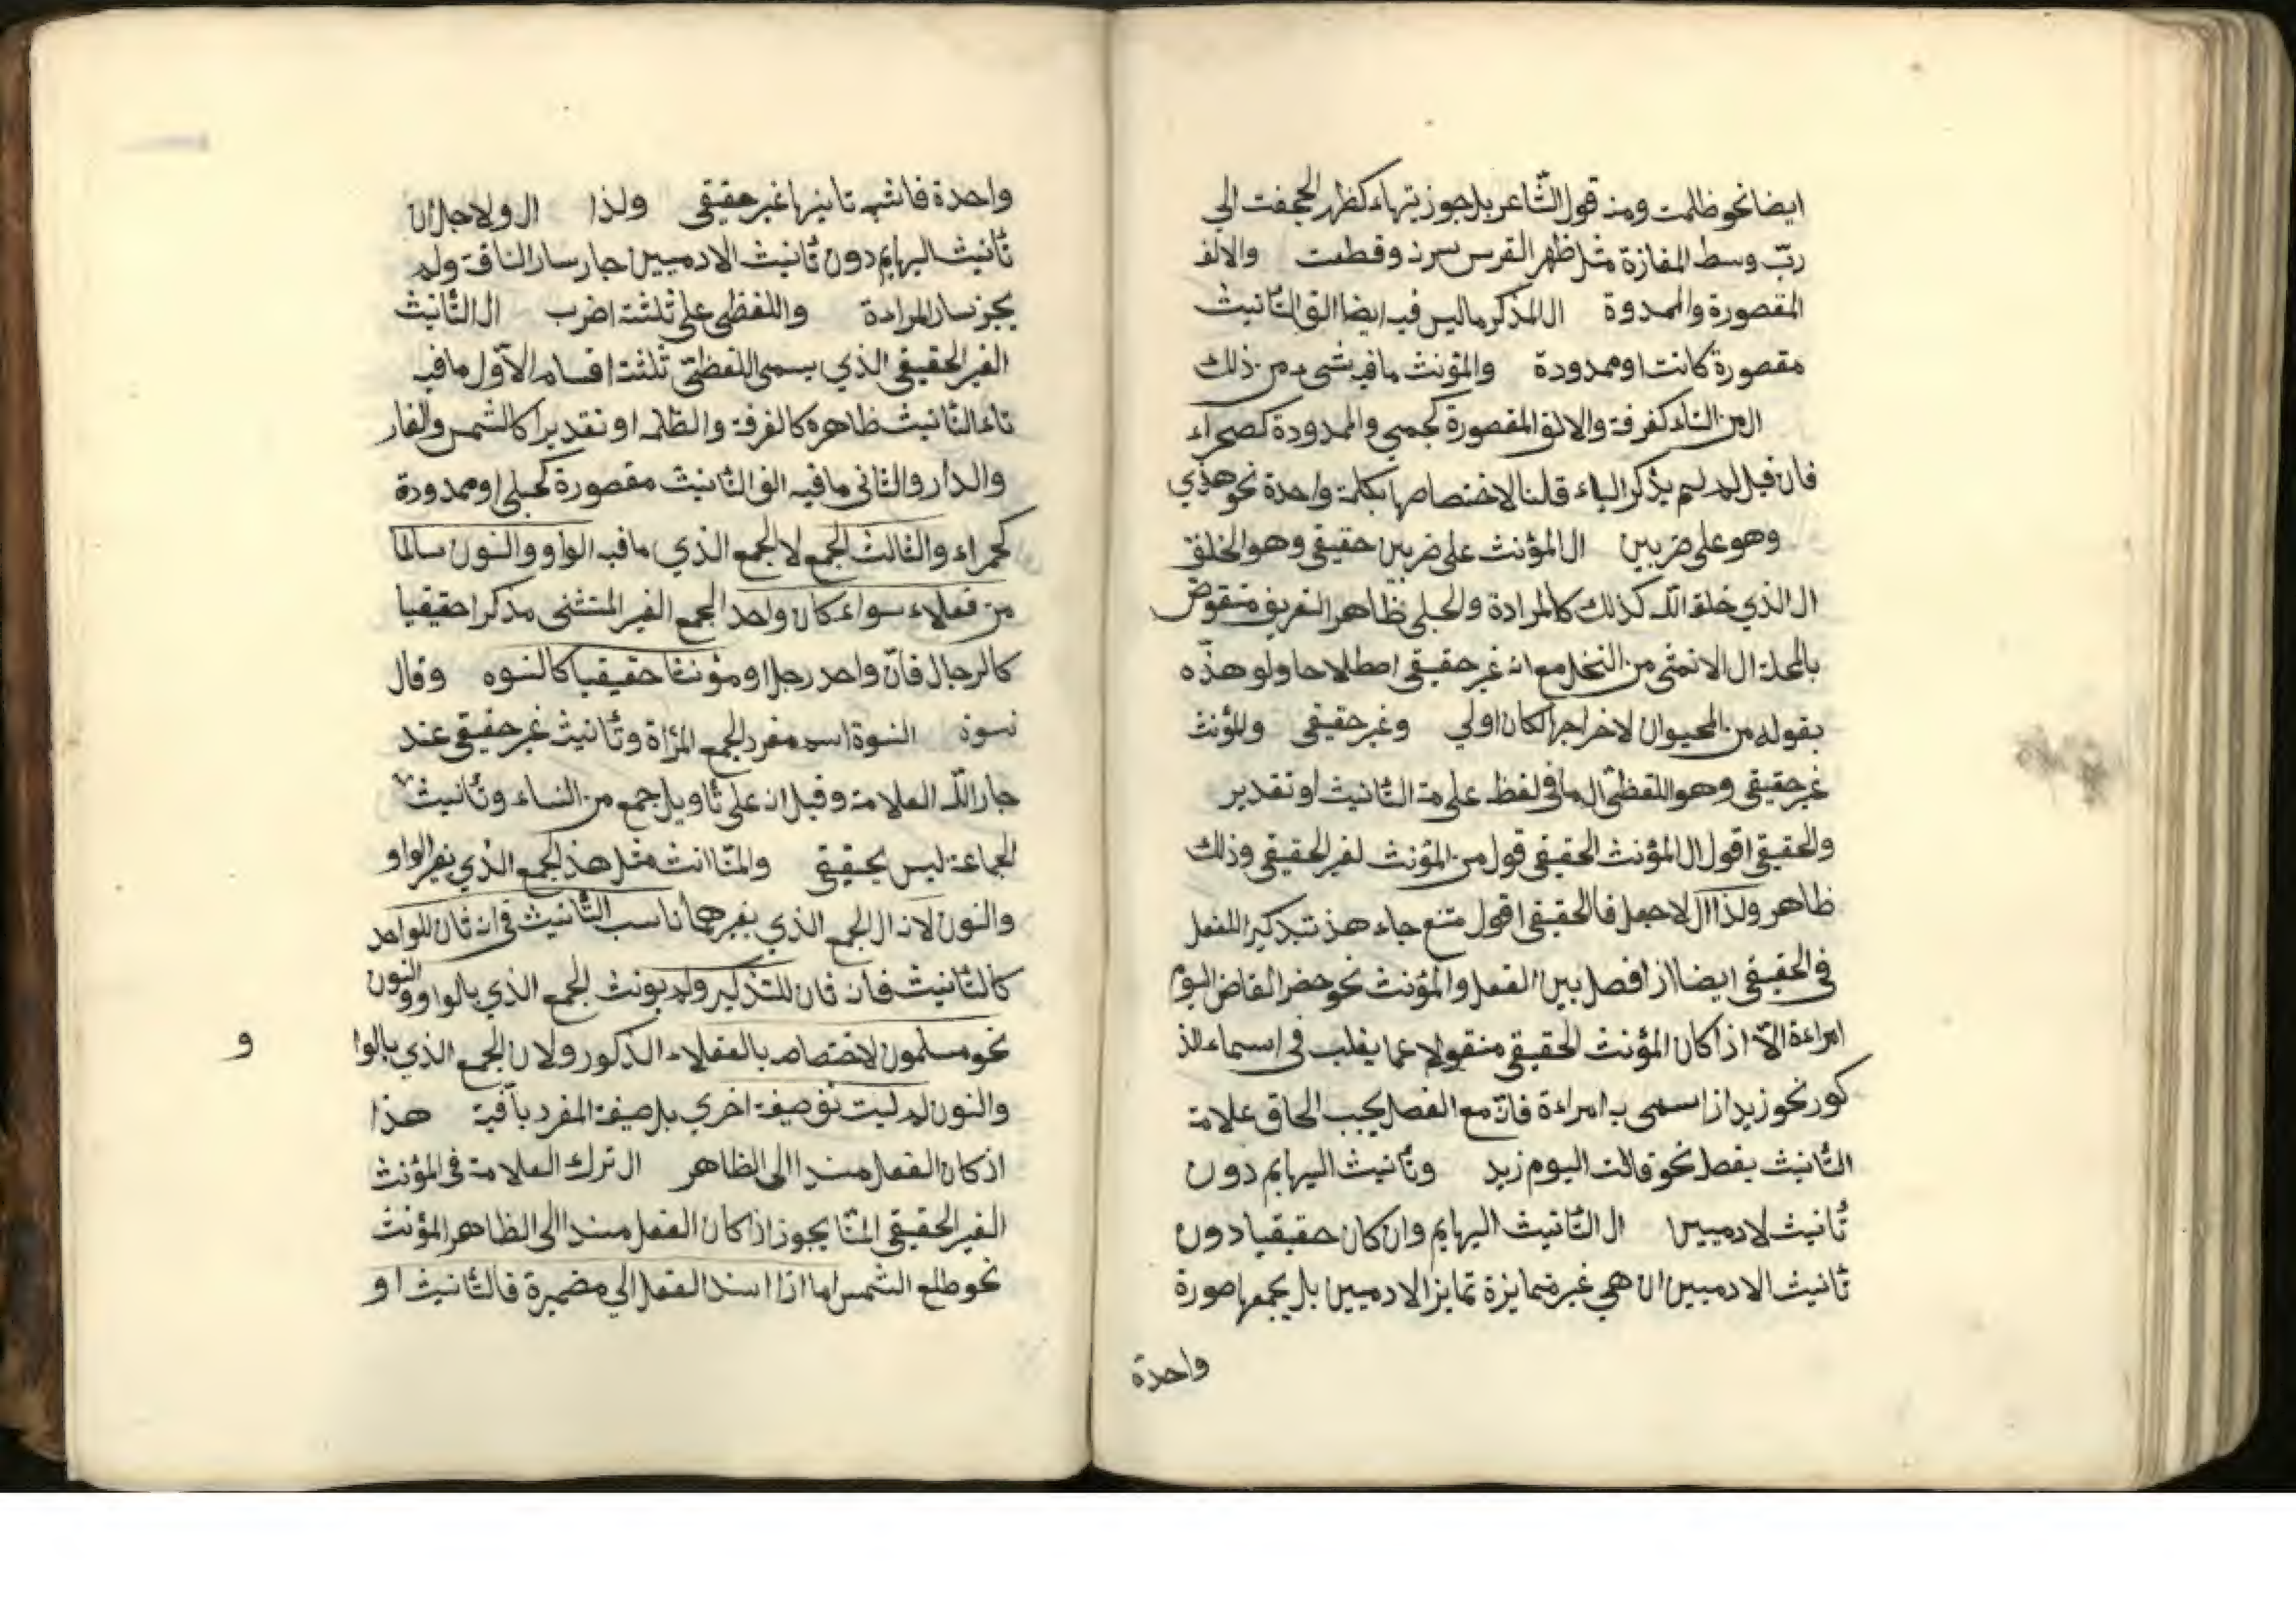 ايضا نحو ظلمت ومنه قول الشاعر بل جوز تيهاء كظهر الحجفت الي
ربّ وسط المفازة مثل ظهر الفرس سرت وقطعت والالف
المقصورة والممدوة ال المذكر ما ليس فيه ايضا الق التأنيث
مقصورة كانت او ممدودة والمؤنث ما فيه شيء من ذلك
ال من التاء كغرفة والالق المقصورة كحبمى والممدودة كصحراء
فان قيل لم لم يذكر الياء قلنا لاختصاصها بكلمة واحدة نحو هذي
وهو على ضربين ال المؤنث على ضربين حقيقي وهو الخلقى
ال الذي خلقه الله كذلك كالمرادة والحبلى ظاهر التعريف منقوض
بالمحلة ال الانثى من النخل مع انه غير حقيقي اصطلاحا ولو هذه
بقوله من الحيوان لاخراجها لكان اولي وغير حقيقي والمؤنث
غير حقيقي وهو اللفظي ال ما في لفظه علامة التأنيث او تقدير
والحقيقي اقول ال المؤنث الحقيقي قول من المؤنث لغير الحقيقي وذلك
ظاهر ولذا ال لاجعل فالحقيقي اقول متنع جاء هند بتذكير الفعل
في الحقيقي ايضا از افصل بين الفعل والمؤنث نحو حضر القاض اليوم
امراءة الّا اذا كان المؤنث الحقيقي منقولا عما يغلب في اسماء الذ
كور نحو زيد از اسمى به امراءة فانّه مع الفصل يجب الحاق علامة
التأنيث بفصل نحو قالت اليوم زيد وتأنيث البهايم دون
تأنيث لادميين ال التأنيث البهايم وان كان حقيقيا دون
تأنيث الادميين ان هي غير متمايزة تمايز الادميين بل يجمعها صورة
واحدة
واحدة فاشبه تانيثها غير حقيقي ولذا ال ولاجل ان
تأنيث البهايم دون تأنيث الادميين جار سار الناقة ولم
يجز سار المرادة واللفظي على ثلثة اضرب ال التأنيث
الغير الحقيقي الذي يسمى اللفظيّ ثلثة اقسام الاوّل ما فيه
تاء التأنيث ظاهره كالغرفة والظلمه او تقديرا كالشمس والغار
والدار والثاني ما فيه الق التأنيث مقصورة كحبلى او ممدودة
كحمراء والثالث الجمع لا الجمع الذي ما فيه الواو والنون سالما
من فعلاء سواء كان واحد الجمع الغير المتثنى مذكرا حقيقيا
كالرجال فانّ واحد رجل او مؤنثا حقيقيا كالنسوه وقال
نسوة النسوة اسم مفرد لجمع المرأة وتأنيث غير حقيقي عند
جار الله العلامة وقيل انه على تأويل جمع من النساء وتأنيث
الجماعة ليس بحقيقي والمتا انث مثل هذ الجمع الذي بغير الواو
والنون لانه ال الجمع الذي بغيرهما ناسب التأنيث في انه ثان للواحد
كالتأنيث فأن ثان للتذكير ولم يونث الجمع الذي بالواو والنون
نحو مسلمون لاختصاصه بالعقلاء الذكور ولان الجمع الذي بالوا
و
والنون لم ليت نوصيغة اخري بل صيغة المفرد باقية هذا
اذ كان الفعل مسندا الى الظاهر ال ترك العلامة في المؤنث
الغير الحقيقي المتا يجوز اذا كان الفعل مسندا الى الظاهر المؤنث
نحو طلع الشمس اما اذا اسند الفعل الي مضمرة فالتأنيث او